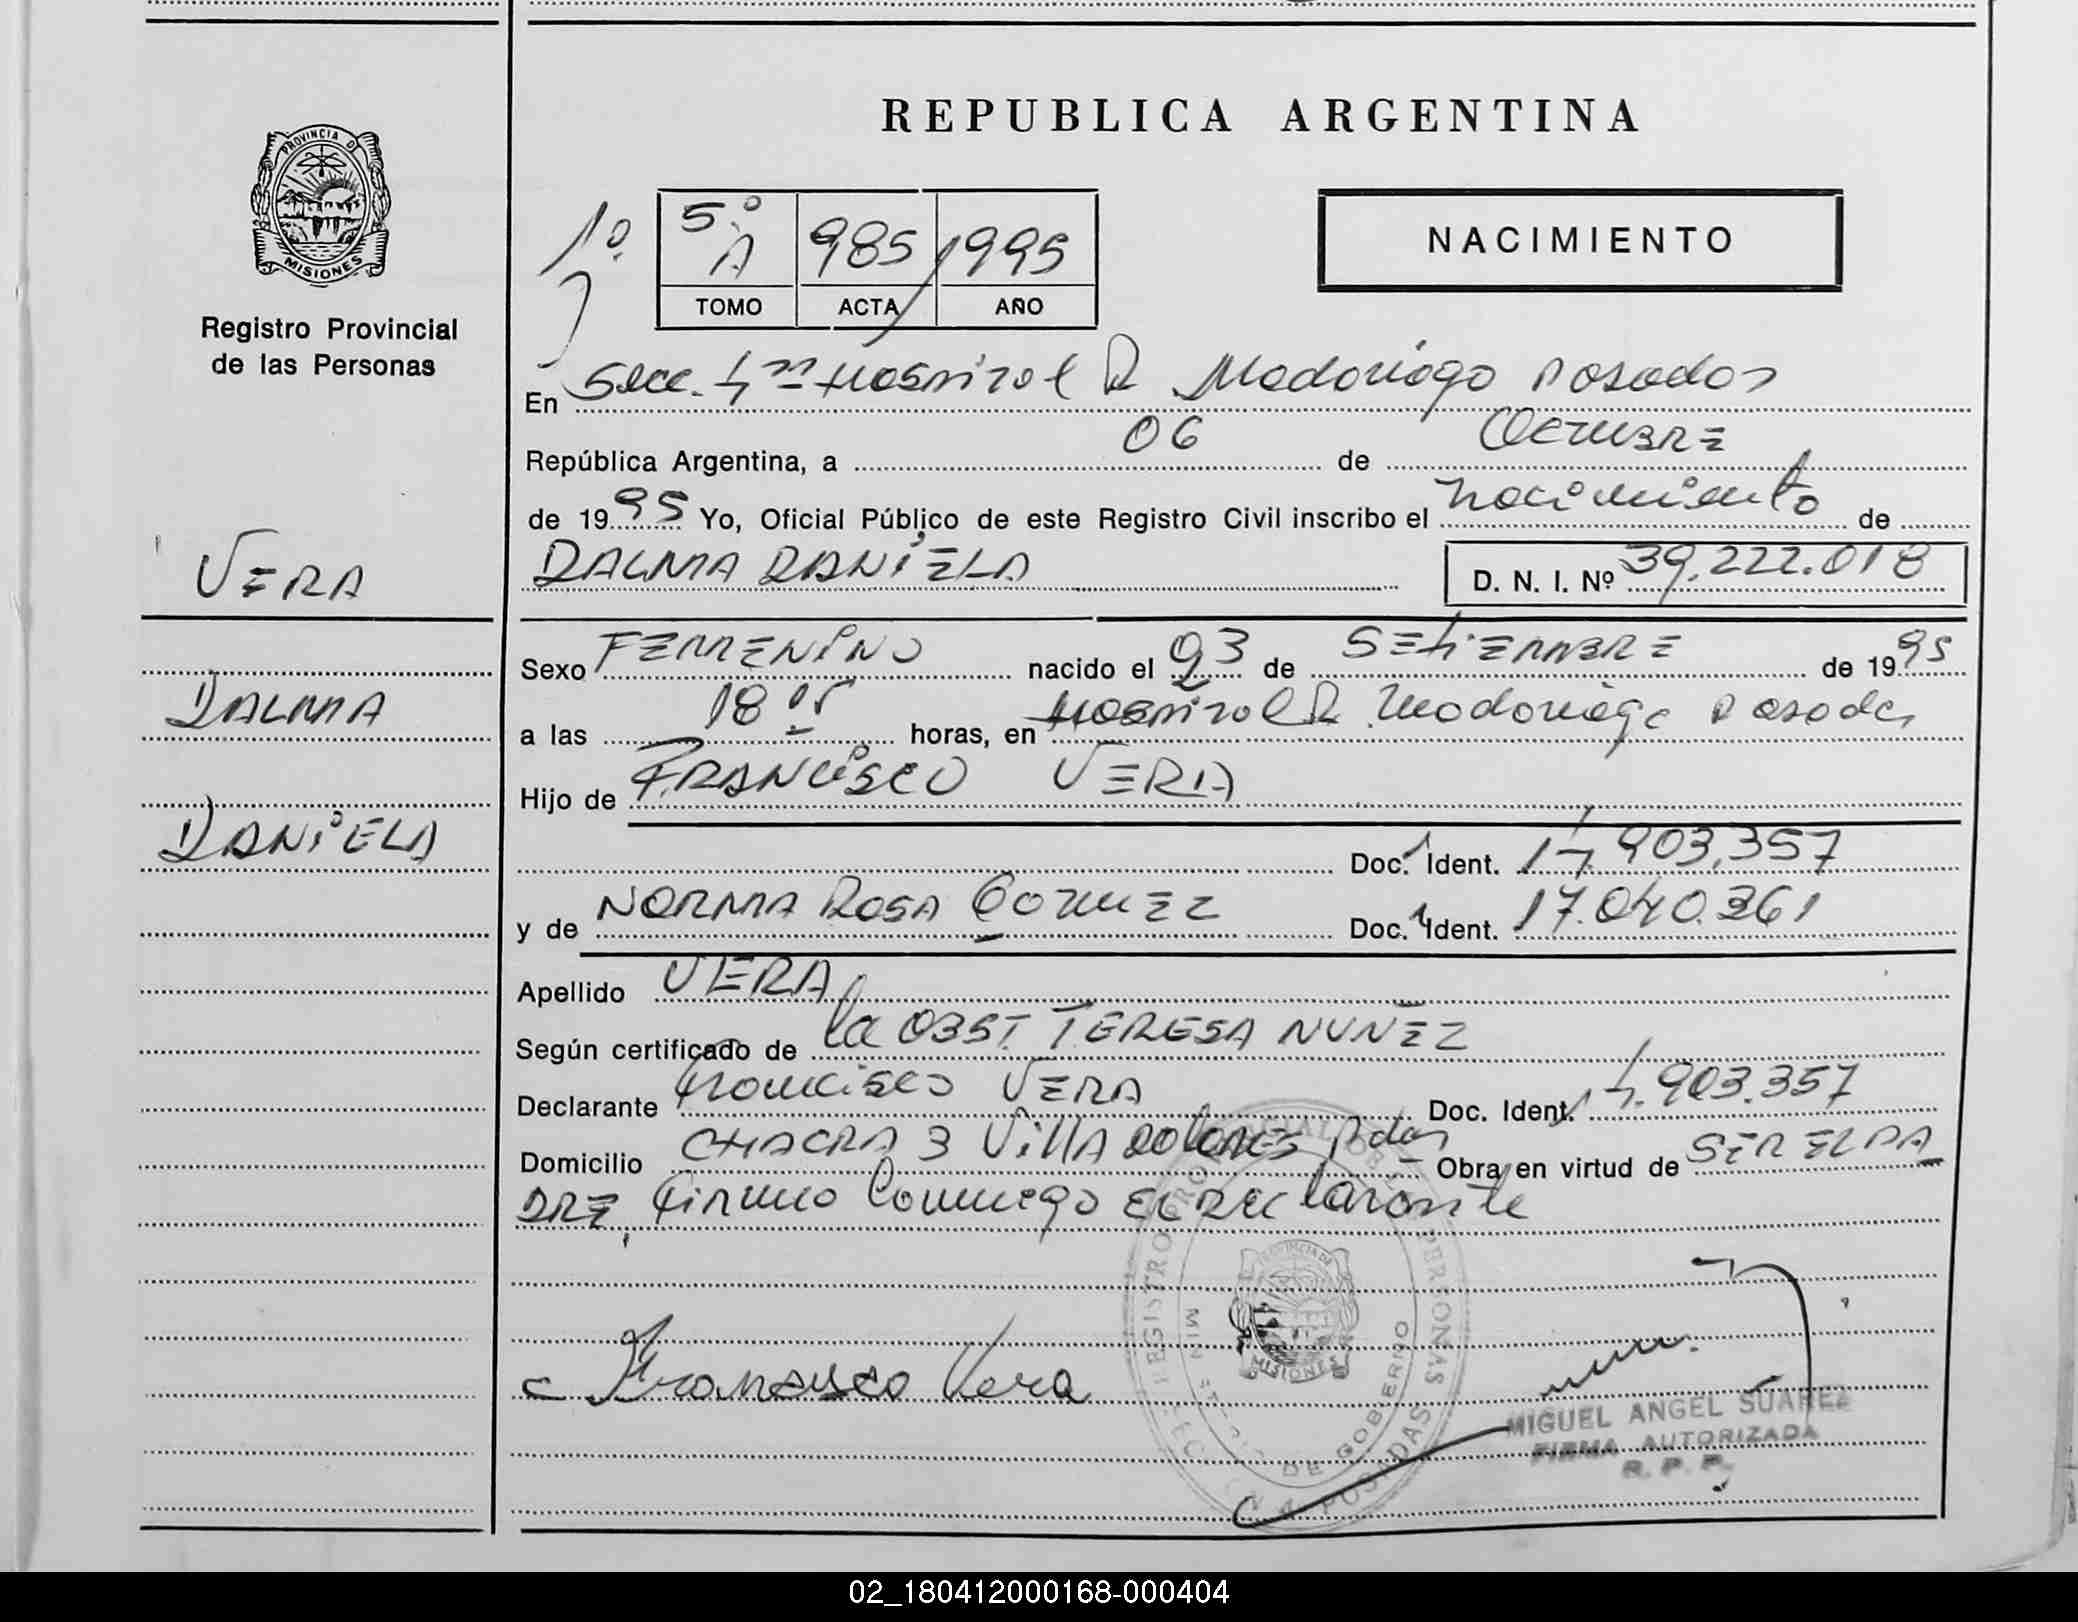 REPUBLICA ARGENTINA
PROVINCIA DE
MISIONES
Registro Provincial
de las Personas
1º
5º A 985 1995
TOMO ACTA AÑO
NACIMIENTO
En Secc. 4ta Hospital R Madariaga Posadas
República Argentina, a 06 de Octubre
de 1995 Yo, Oficial Público de este Registro Civil inscribo el nacimiento de
VERA
DALMA DANIELA D. N. I. Nº 39.222.018
Sexo FEMENINO nacido el 23 de SEtiEMBRE de 1995
DALMA
a las 18 horas, en Hospital R Madariaga Posadas
Hijo de FRANCISCO VERA
DANiELA
Doc. Ident. 17.903.357
y de NORMA ROSA GOMEZ Doc. Ident. 17.040.361
Apellido VERA
Según certificado de la OBST. TERESA NUNEZ
Declarante Francisco VERA Doc. Ident. 17.903.357
Domicilio CHACRA 3 VillA DOlORES Pdas Obra en virtud de SER EL PA
DRE, Firma Conmigo El Declarante
Francisco Vera
REGISTRO PROVINCIAL DE LAS PERSONAS
MINISTERIO DE GOBIERNO
MISIONES
POSADAS
MIGUEL ANGEL SUAREZ
FIRMA AUTORIZADA
R. P. P.
02_180412000168-000404